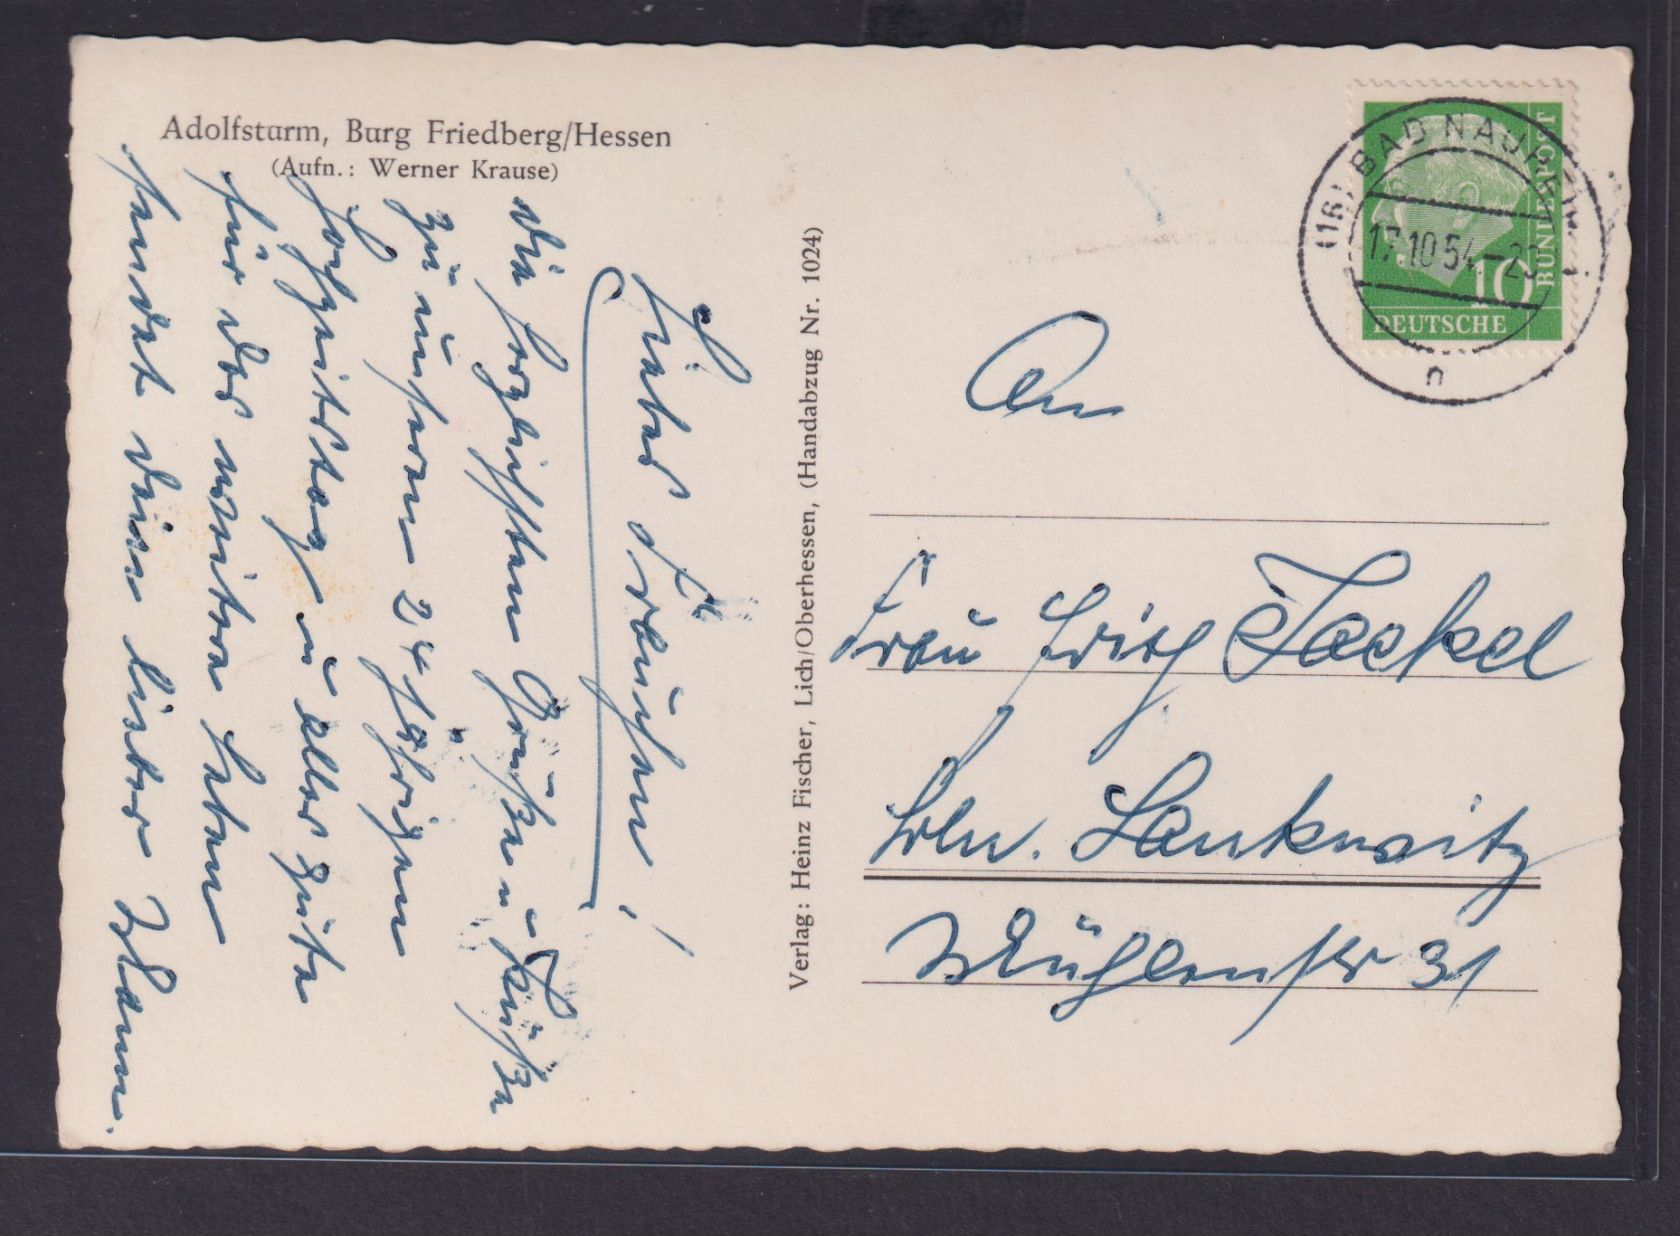 Adolfsturm, Burg Friedberg/Hessen
(Aufn.: Werner Krause)
Liebes Frauchen!
die herzlichsten Grüße u Küsse
zu unserem 24 jährigen
Hochzeitstag u alles gute
für das weitere Leben
sendet dein lieber Mann.
Verlag: Heinz Fischer, Lich/Oberhessen, (Handabzug Nr. 1024)
(16) BAD NAUHEIM
17.10.54.-20
n
10
DEUTSCHE
BUNDESPOST
An
Frau Fritz Jaekel
Bln. Lankwitz
Mühlenstr 31